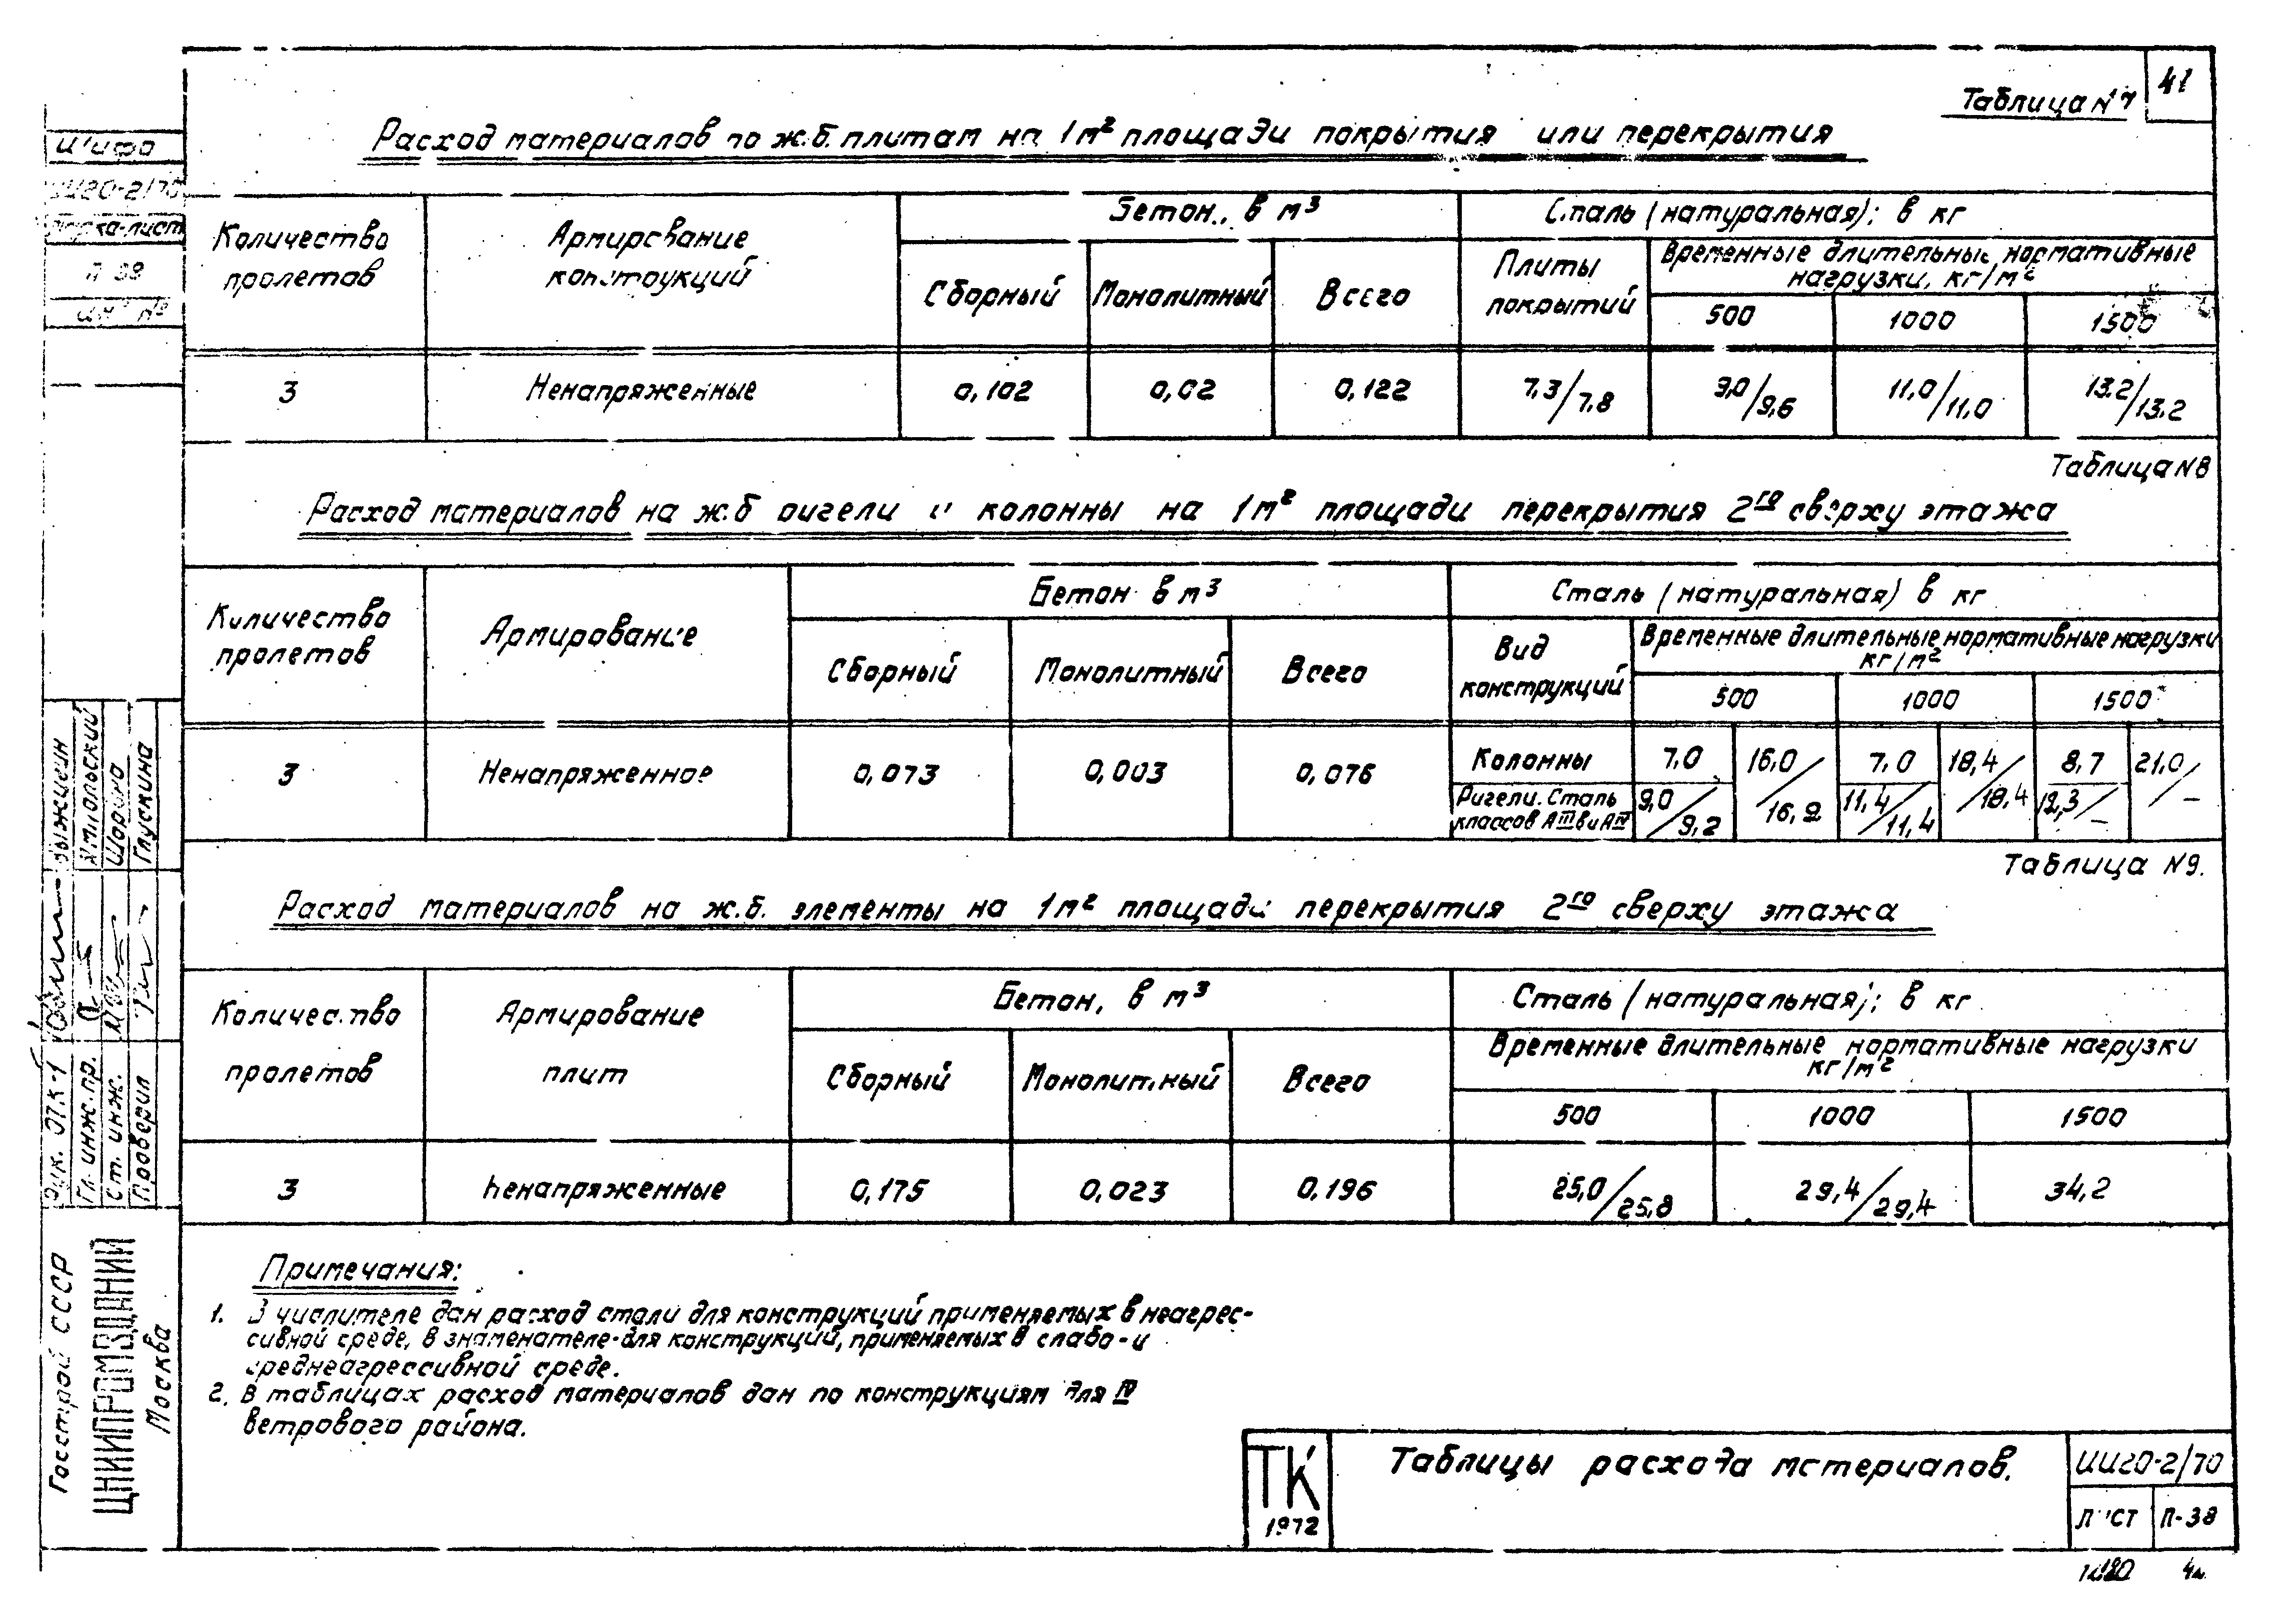 41
Таблица №7
Расход материалов по ж.б. плитам на 1м² площади покрытия или перекрытия
Количество пролетов
Армирование конструкций
Бетон, в м³
Сталь (натуральная); в кг
Сборный
Монолитный
Всего
Плиты покрытий
Временные длительные нормативные нагрузки, кг/м²
500
1000
1500
3
Ненапряженные
0,102
0,02
0,122
7,3/7,8
9,0/9,6
11,0/11,0
13.2/13.2
Таблица №8
Расход материалов на ж.б ригели и колонны на 1м² площади перекрытия 2го сверху этажа
Количество пролетов
Армирование
Бетон в м³
Сталь (натуральная) в кг
Сборный
Монолитный
Всего
Вид конструкций
Временные длительные нормативные нагрузки кг/м²
500
1000
1500
3
Ненапряженное
0,073
0,003
0,076
Колонны
7,0
16,0/16,2
7,0
18,4/18,4
8,7
21,0/–
Ригели. Сталь классов АIIIв и АIV
9,0/9,2
11,4/11,4
12,3/–
Таблица №9.
Расход материалов на ж.б. элементы на 1м² площади перекрытия 2го сверху этажа
Количество пролетов
Армирование плит
Бетон, в м³
Сталь (натуральная); в кг
Сборный
Монолитный
Всего
Временные длительные нормативные нагрузки кг/м²
500
1000
1500
3
Ненапряженные
0,175
0,023
0,196
25,0/25,8
29,4/29,4
34,2
Примечания:
1. В числителе дан расход стали для конструкций применяемых в неагрес-
сивной среде, в знаменателе-для конструкций, применяемых в слабо-и
среднеагрессивной среде.
2. В таблицах расход материалов дан по конструкциям для IV
ветрового района.
ТК
1972
Таблицы расхода материалов.
ИИ20-2/70
Лист
П-38
Шифр
ИИ20-2/70
Марка-лист
П 38
Инв №
Рук. ОТК-1
Гл. инж.пр.
Ст. инж.
Проверил
Хмильский
Шорина
Глускина
Госстрой СССР
ЦНИИПРОМЗДАНИЙ
Москва